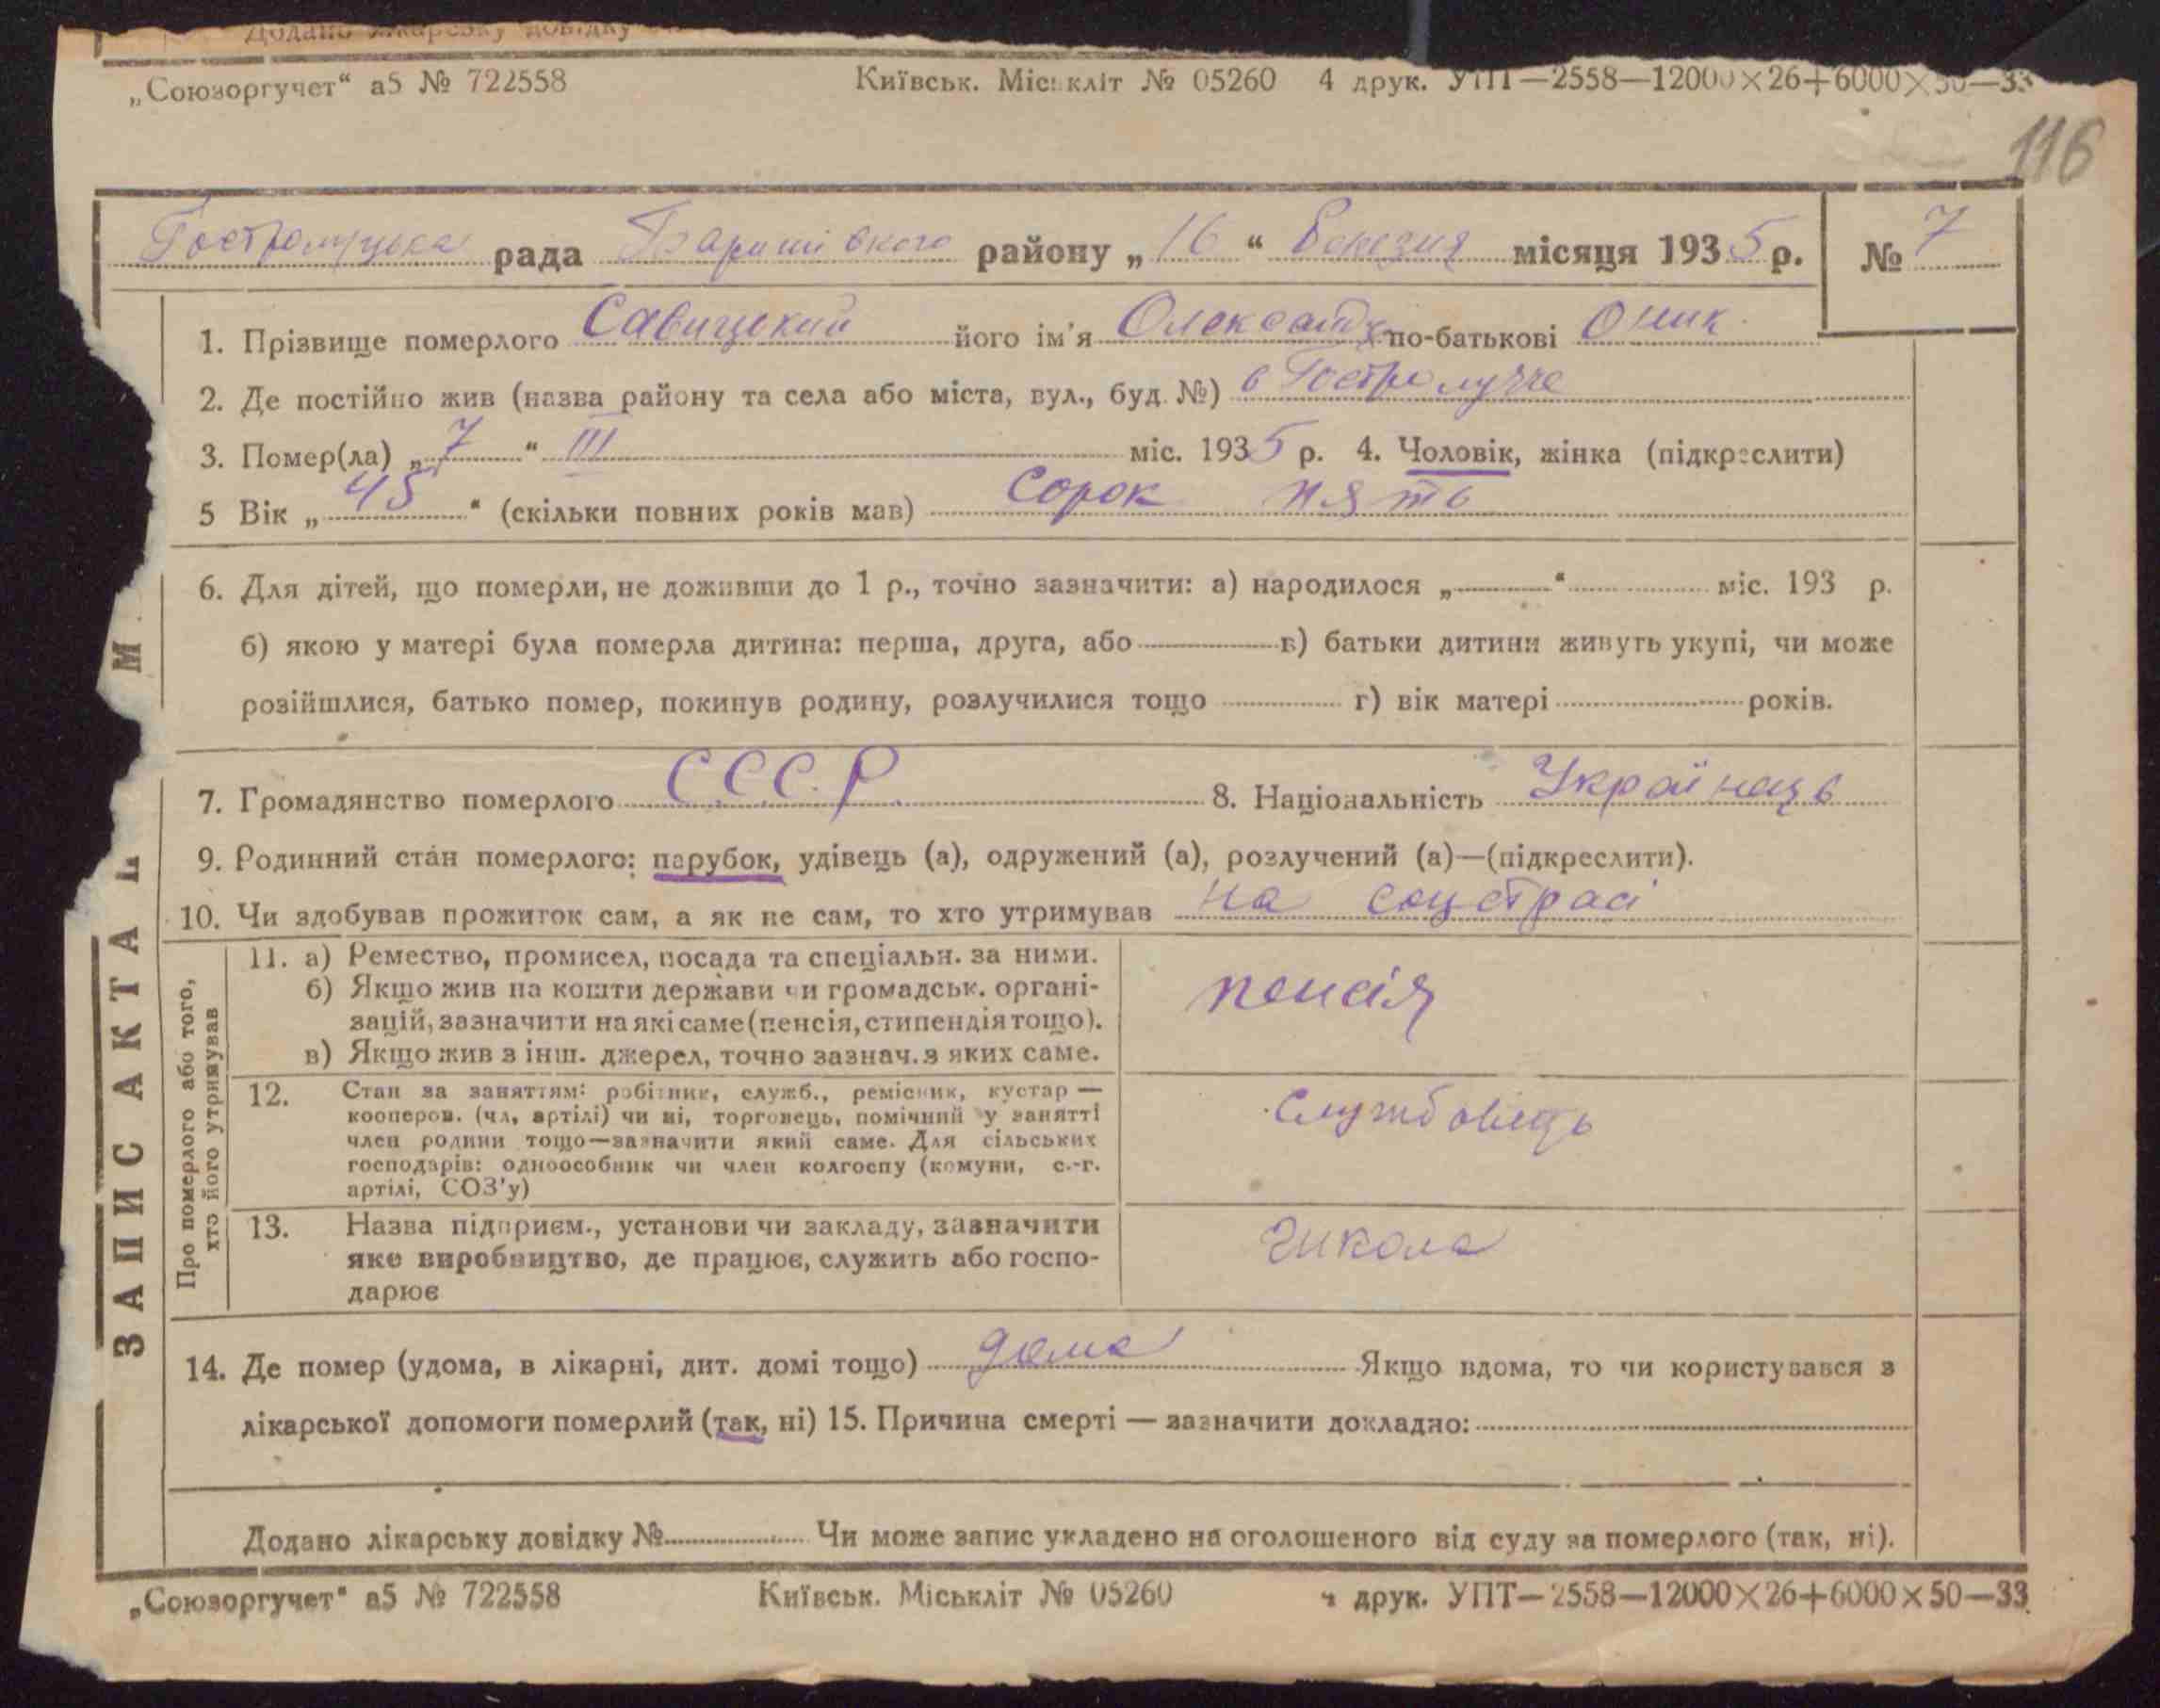 Додано лікарську довідку
„Союзоргучет“ а5 № 722558 Київськ. Міськліт № 05260 4 друк. УПТ—2558—12000×26+6000×50—33
116
Гостролуцька рада Баришівского району „16“ Березня місяця 1935 р. № 7
1. Прізвище померлого Савицький його ім'я Олександр по-батькові Оник.
2. Де постійно жив (назва району та села або міста, вул., буд. №) в Гостролучче
3. Помер(ла) „7“ III міс. 1935 р. 4. Чоловік, жінка (підкреслити)
5 Вік „45“ (скільки повних років мав) Сорок пять
6. Для дітей, що померли, не доживши до 1 р., точно зазначити: а) народилося „ “ міс. 193 р.
б) якою у матері була померла дитина: перша, друга, або в) батьки дитини живуть укупі, чи може
розійшлися, батько помер, покинув родину, розлучилися тощо г) вік матері років.
7. Громадянство померлого С.С.С.Р. 8. Національність Українець
9. Родинний стан померлого: парубок, удівець (а), одружений (а), розлучений (а)—(підкреслити).
10. Чи здобував прожиток сам, а як не сам, то хто утримував на соцстрасі
ЗАПИС АКТА М
Про померлого або того,
хто його утримував
11. а) Ремество, промисел, посада та спеціальн. за ними.
б) Якщо жив на кошти держави чи громадськ. органі-
зацій, зазначити на які саме (пенсія, стипендія тощо).
в) Якщо жив з інш. джерел, точно зазнач. з яких саме.
пенсія
12. Стан за заняттям: робітник, служб., ремісник, кустар —
кооперов. (чл, артілі) чи ні, торговець, помічний у занятті
член родини тощо—зазначити який саме. Для сільських
господарів: одноособник чи член колгоспу (комуни, с.-г.
артілі, СОЗ'у)
Службовець
13. Назва підприєм., установи чи закладу, зазначити
яке виробництво, де працює, служить або госпо-
дарює
школа
14. Де помер (удома, в лікарні, дит. домі тощо) дома Якщо вдома, то чи користувався з
лікарської допомоги померлий (так, ні) 15. Причина смерті — зазначити докладно:
Додано лікарську довідку № Чи може запис укладено на оголошеного від суду за померлого (так, ні).
„Союзоргучет“ а5 № 722558 Київськ. Міськліт № 05260 4 друк. УПТ—2558—12000×26+6000×50—33